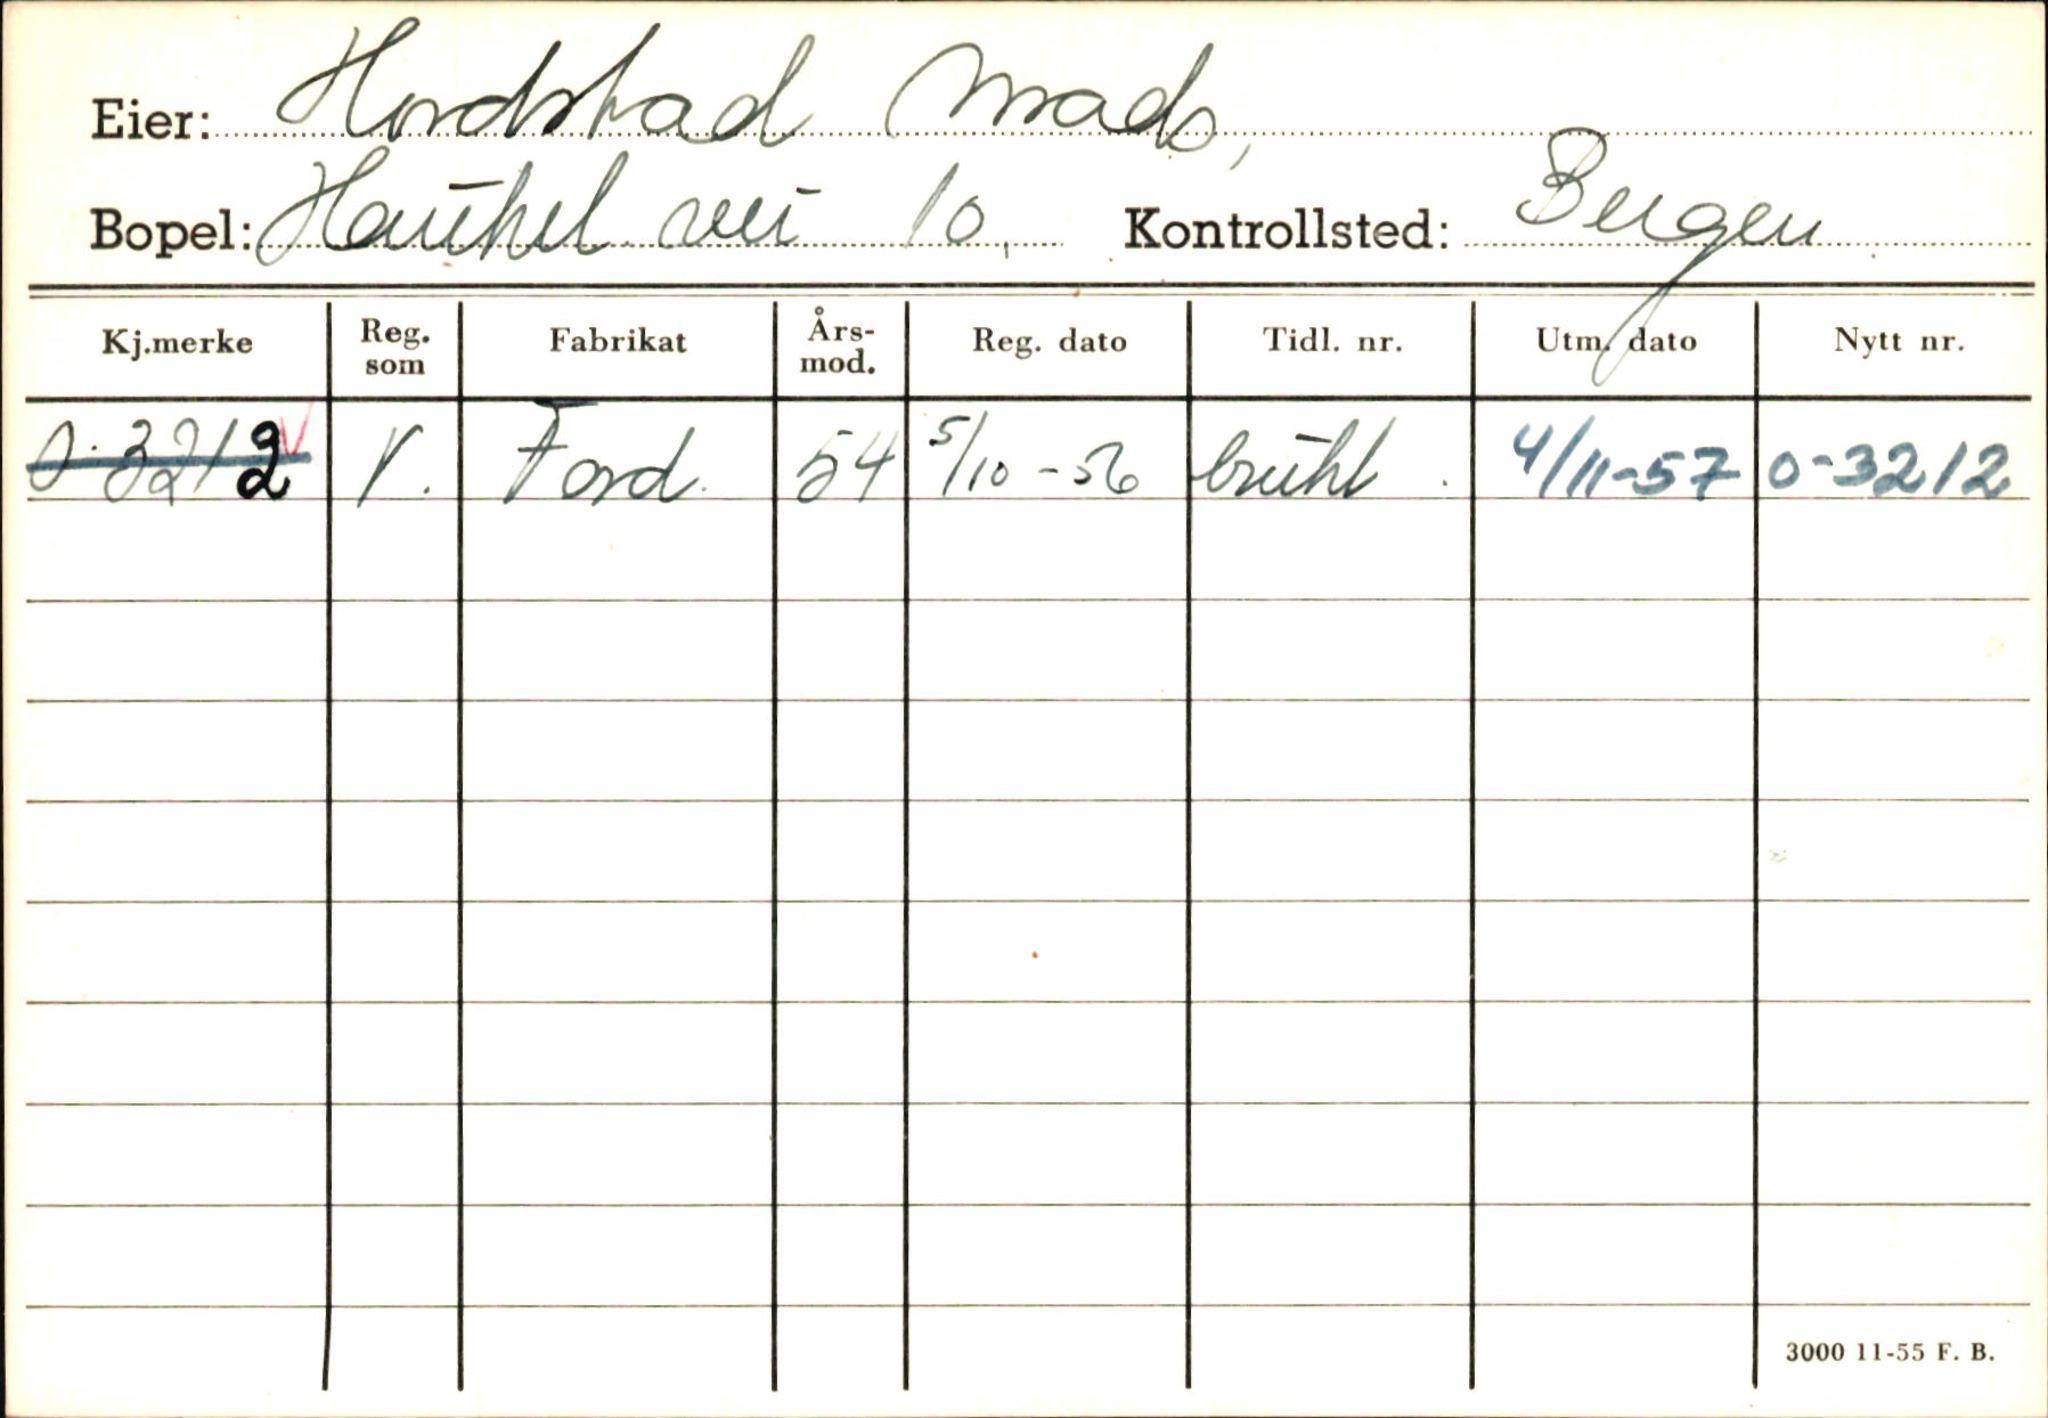 Eier: Hordstad Mads,
Bopel: Haukel vei 10, Kontrollsted: Bergen
Kj.merke Reg. som Fabrikat Års-mod. Reg. dato Tidl. nr. Utm. dato Nytt nr.
O-3212 V V. Ford. 54 5/10-56 brukt. 4/11-57 O-3212
3000 11-55 F. B.